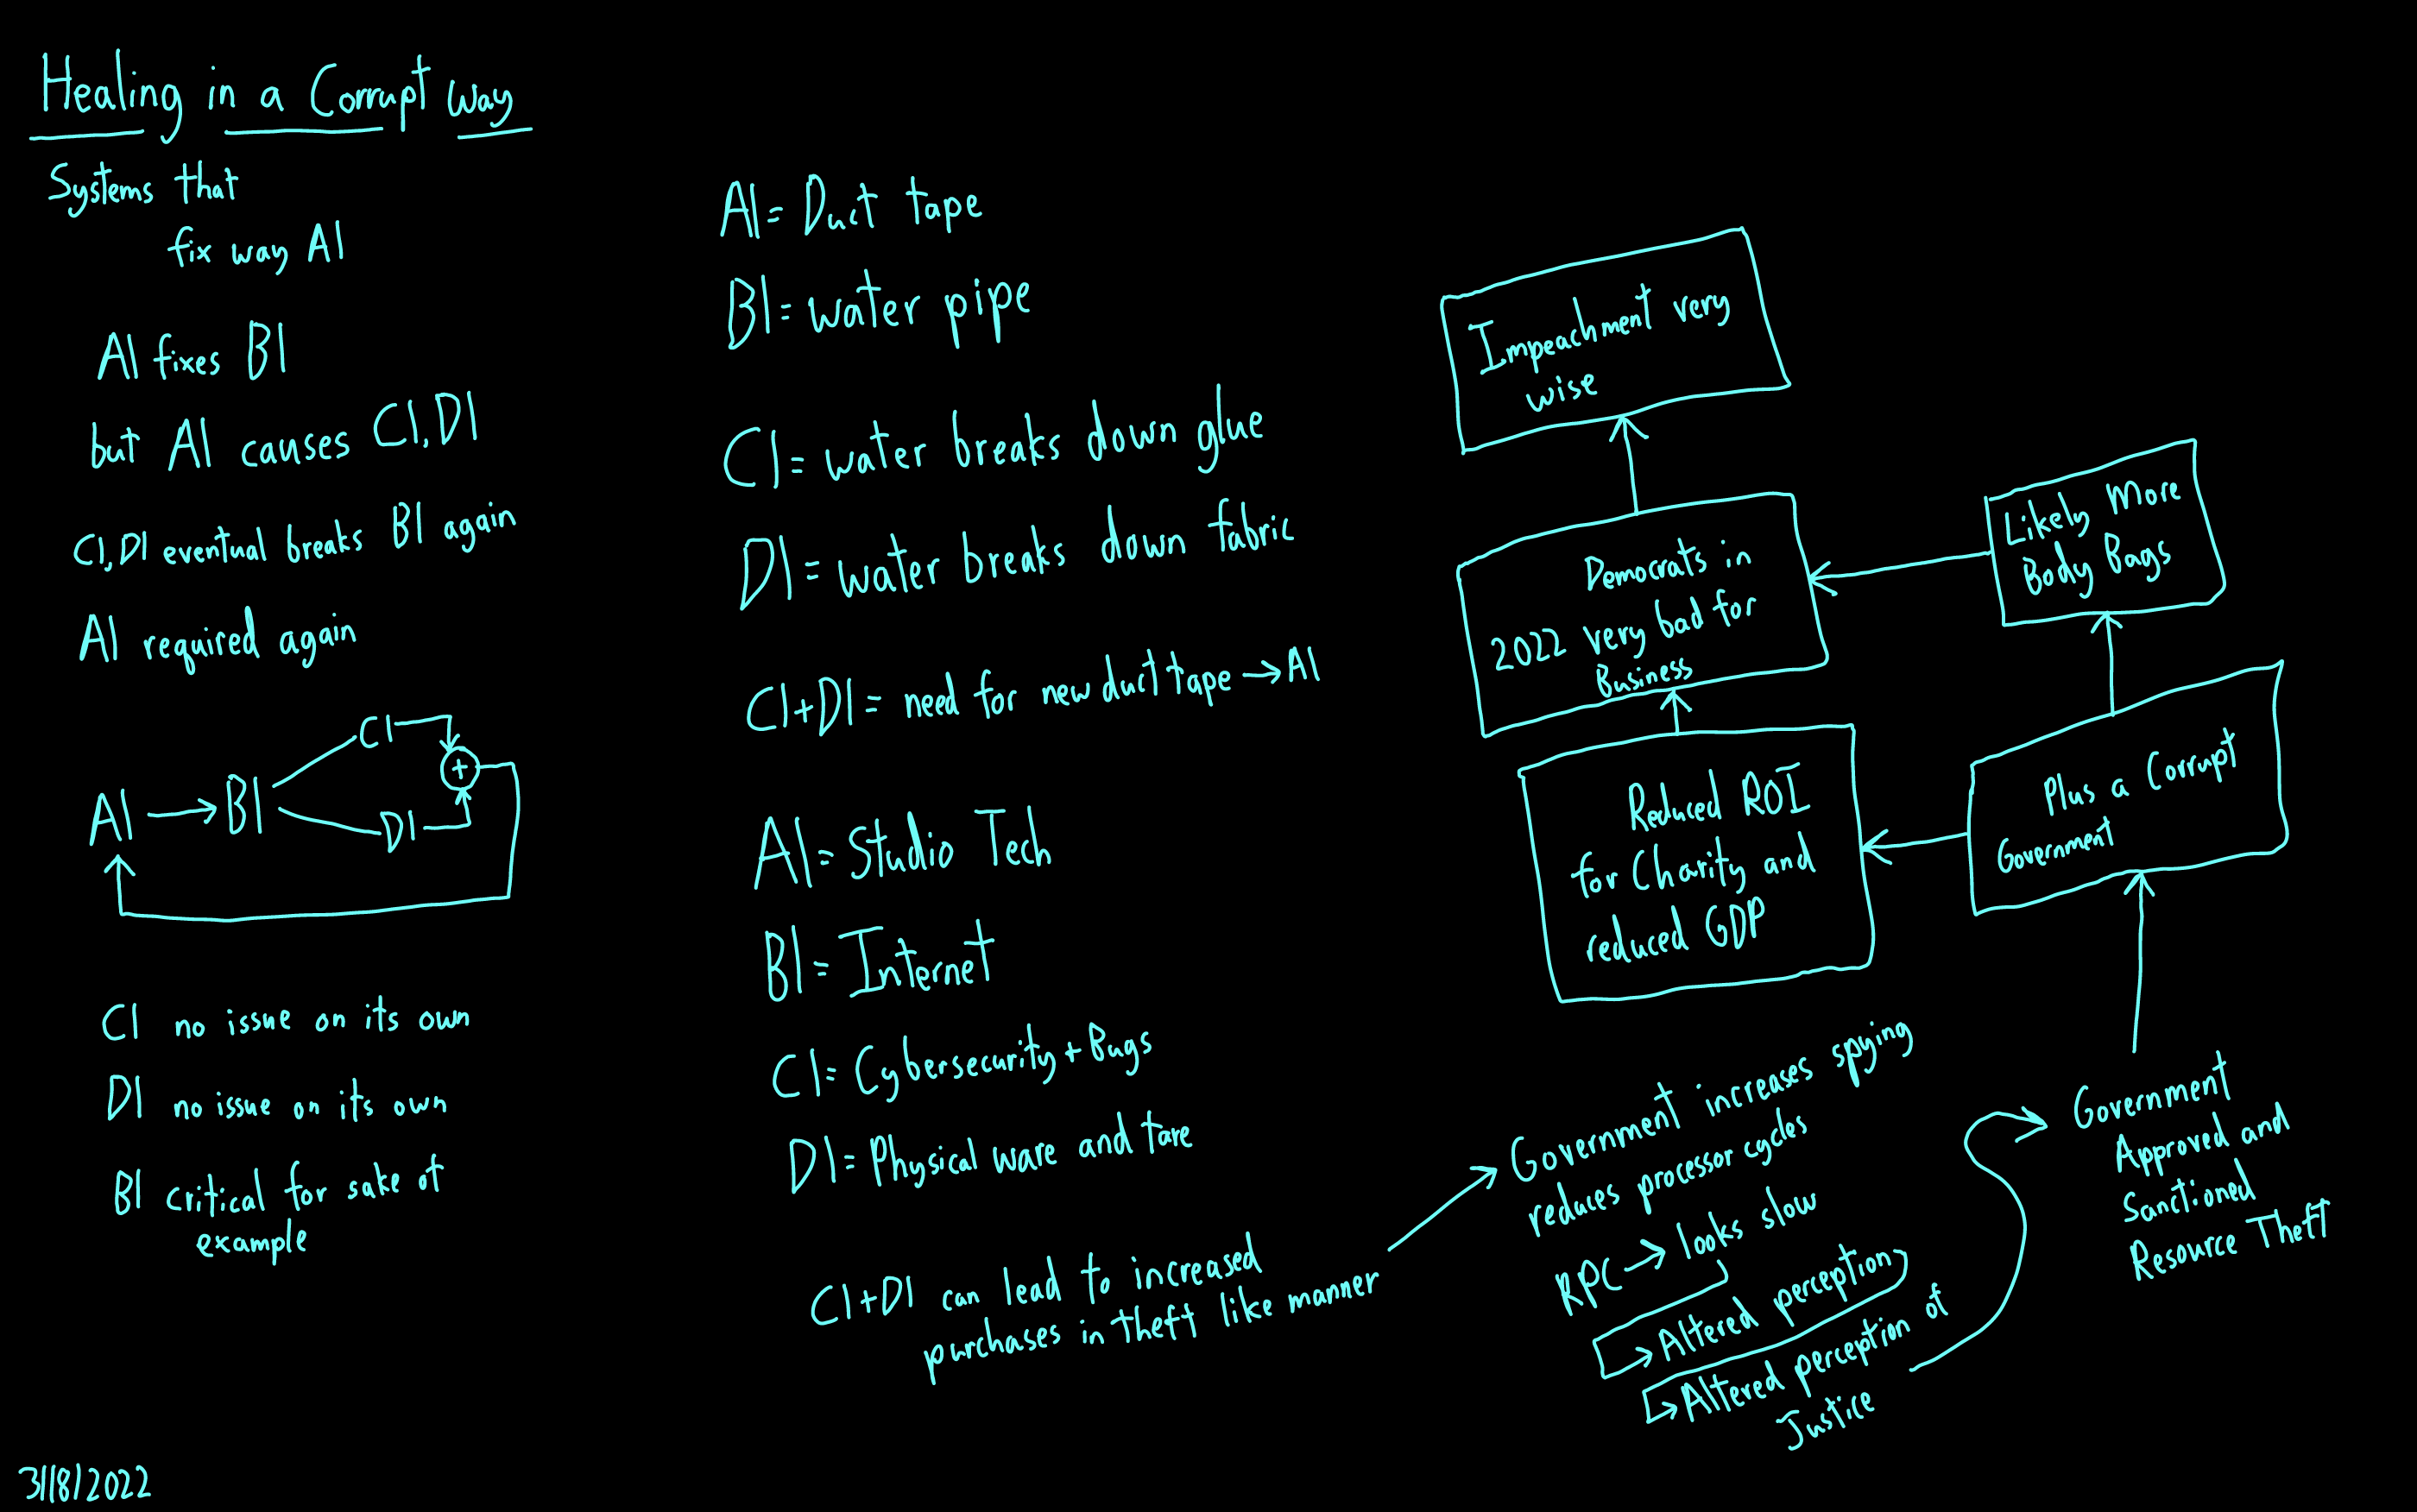 Healing in a Corrupt way
Systems that
fix way A1
A1 fixes B1
but A1 causes C1, D1
C1, D1 eventual breaks B1 again
A1 required again
C1
+
A1
B1
D1
C1 no issue on its own
D1 no issue on its own
B1 critical for sake of
example
31/8/2022
A1= Duct tape
B1= water pipe
C1= water breaks down glue
D1= water breaks down fabric
C1+D1= need for new duct tape → A1
A1= Studio Tech
B1= Internet
C1= Cybersecurity + Bugs
D1= Physical ware and tare
C1+D1 can lead to increased
purchases in theft like manner
Government increases spying
reduces processor cycles
RPC → looks slow
Altered perception
Altered perception of
Justice
Government
Approved and
Sanctioned
Resource Theft
Plus a Corrupt
Government
Likely More
Body Bags
Reduced ROI
for Charity and
reduced GDP
Democrats in
2022 very bad for
Business
Impeachment very
wise